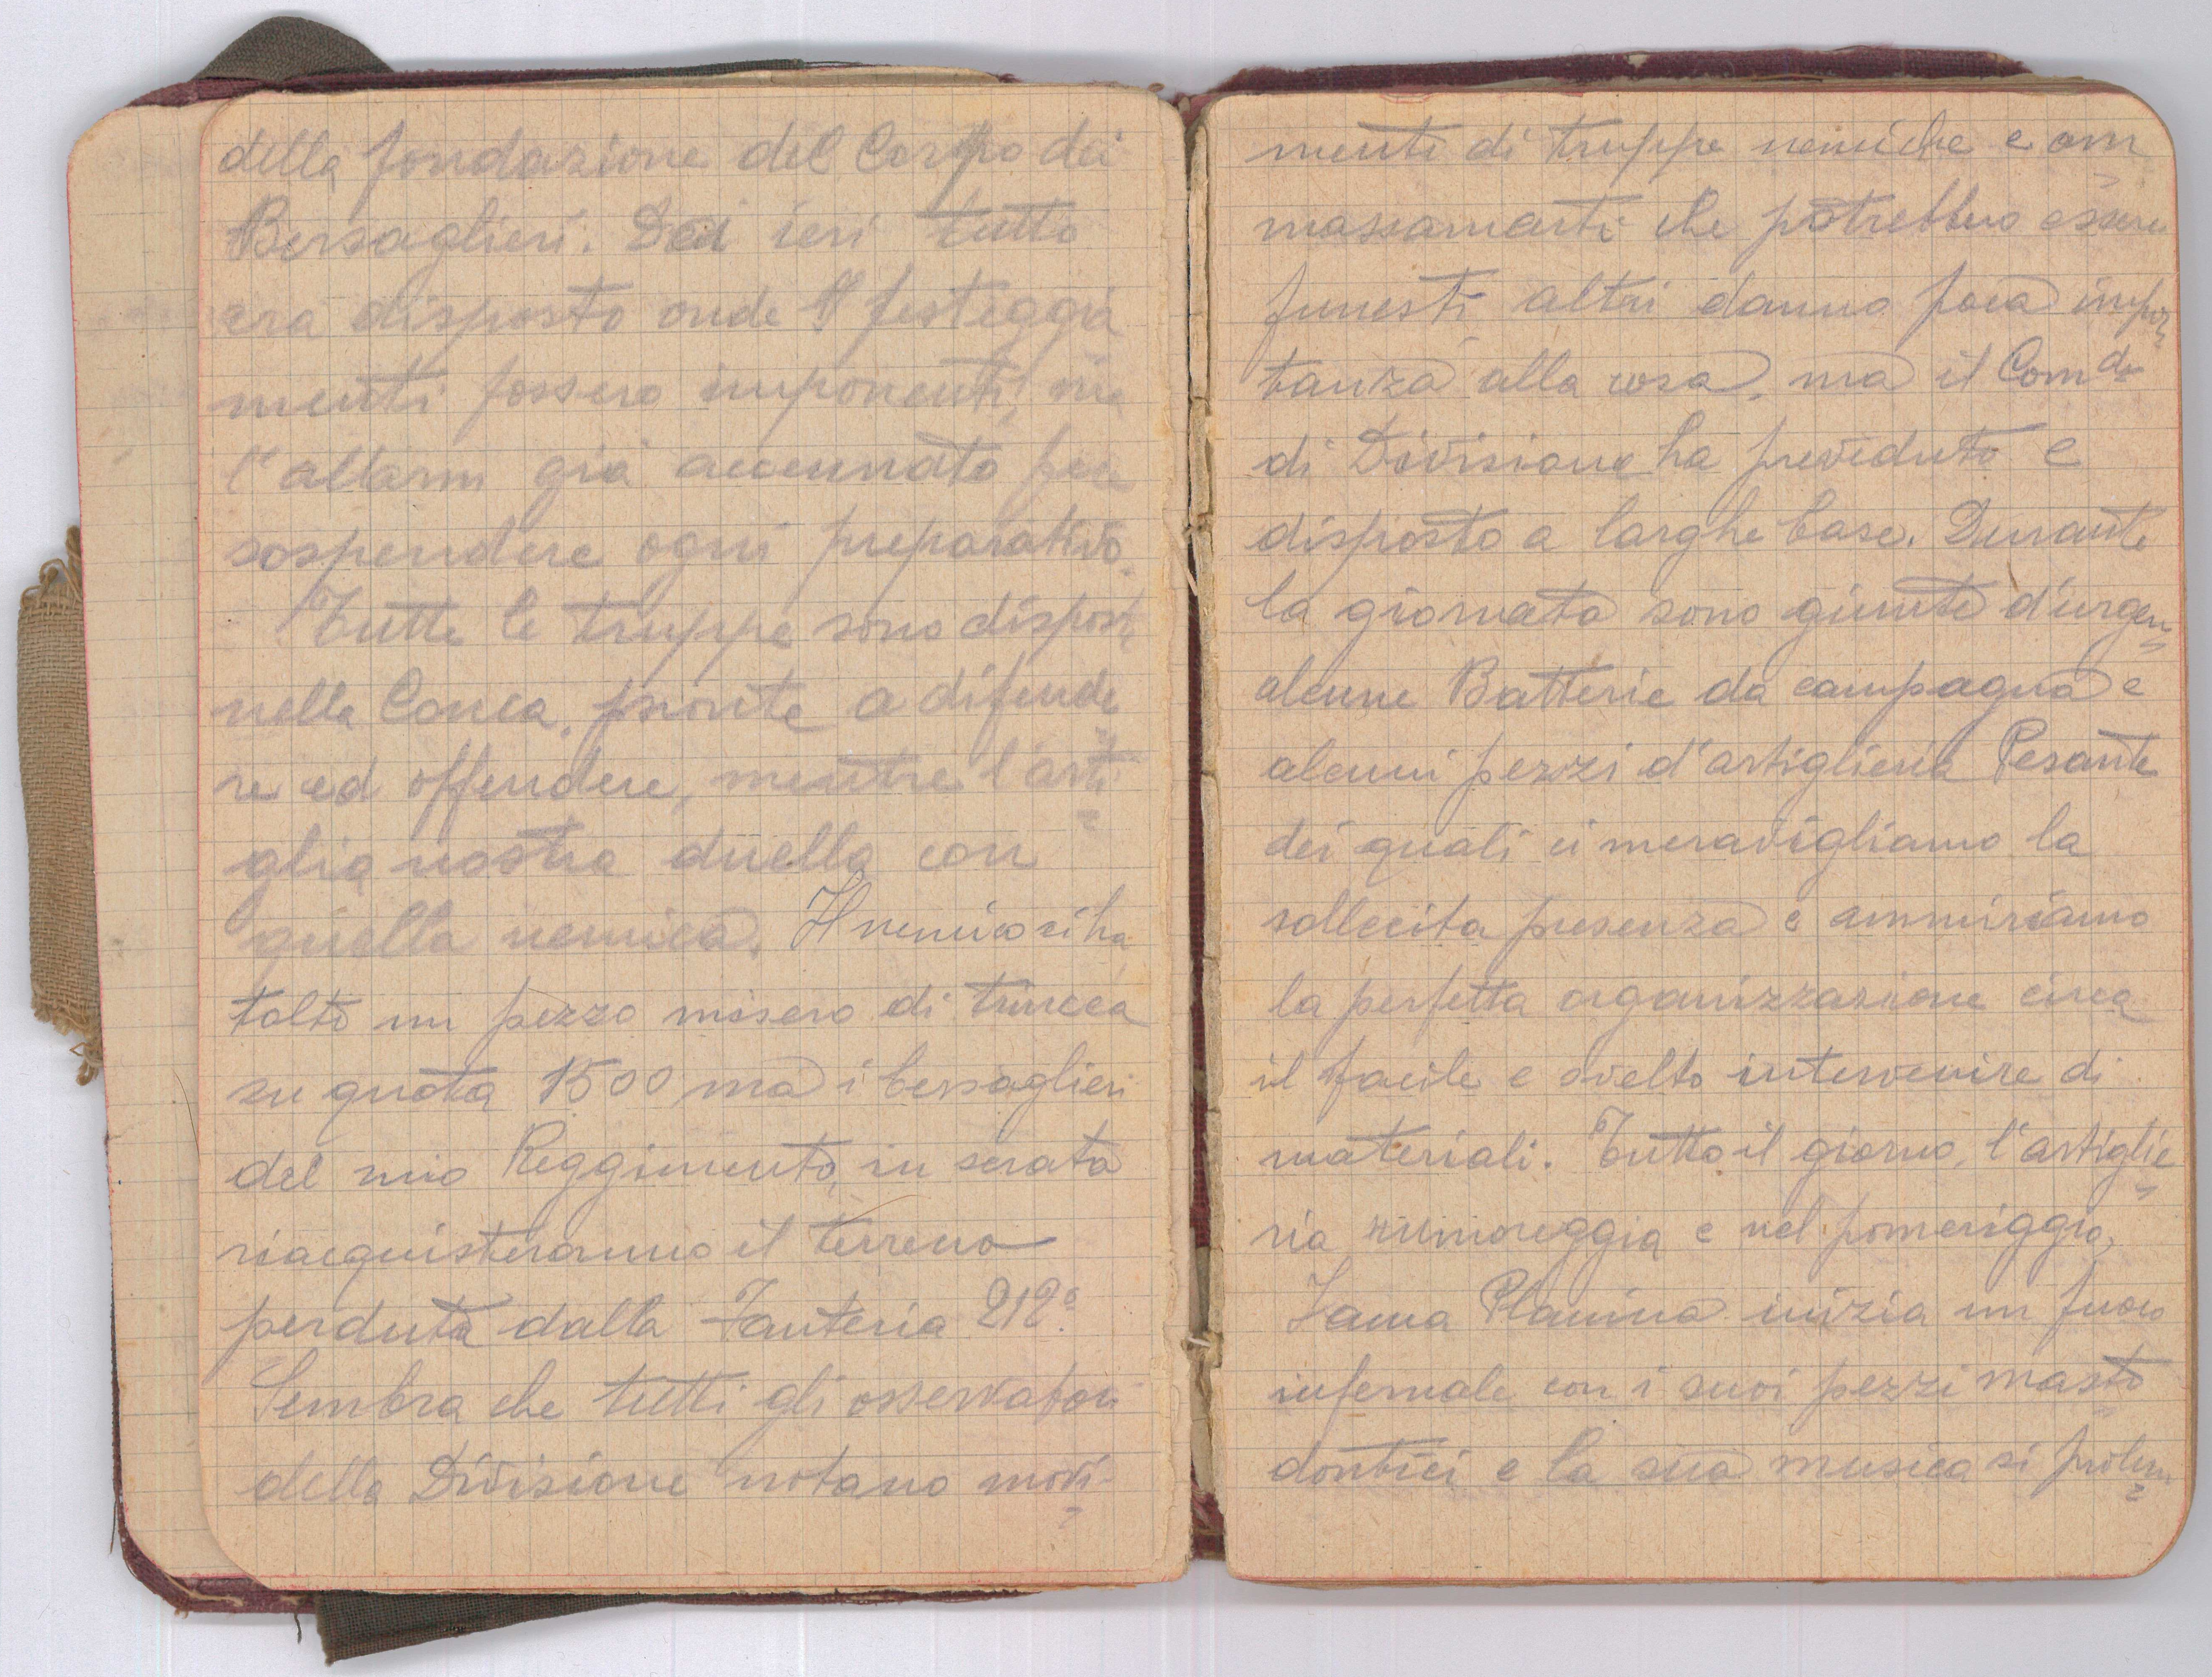 della fondazione del Corpo dei
Bersaglieri. Dai ieri tutto
era disposto onde i festeggia
menti fossero imponenti, ma
l'allarm già accennato fece
sospendere ogni preparativo.
Tutte le truppe sono disposte
nella Conca, pronte a difende
re ed offendere, mentre l'arti
glia nostra duella con
quella nemica. Il nemico ci ha
tolto un pezzo misero di trincea
su quota 1500 ma i bersaglieri
del mio Reggimento, in serata
riacquisteranno il terreno
perduta dalla Fanteria 212°.
Sembra che tutti gli osservatori
della Divisione notano movi-
menti di truppe nemiche e am
massamenti che potrebbero essere
funesti altri danno poca impor
tanza alla cosa, ma il Comdo
di Divisione ha preveduto e
disposto a larghe base. Durante
la giornata sono giunte d'urgen
alcune Batterie da campagna e
alcuni pezzi d'artiglieria Pesante
dei quali ci meravigliamo la
sollecita presenza e ammiriamo
la perfetta organizzazione circa
il facile e svelto intervenire di
materiali. Tutto il giorno, l'artiglie
ria rumoreggia e nel pomeriggio,
Jama Planina inizia un fuoco
infernale con i suoi pezzi masto
dontici e la sua musica si prolun